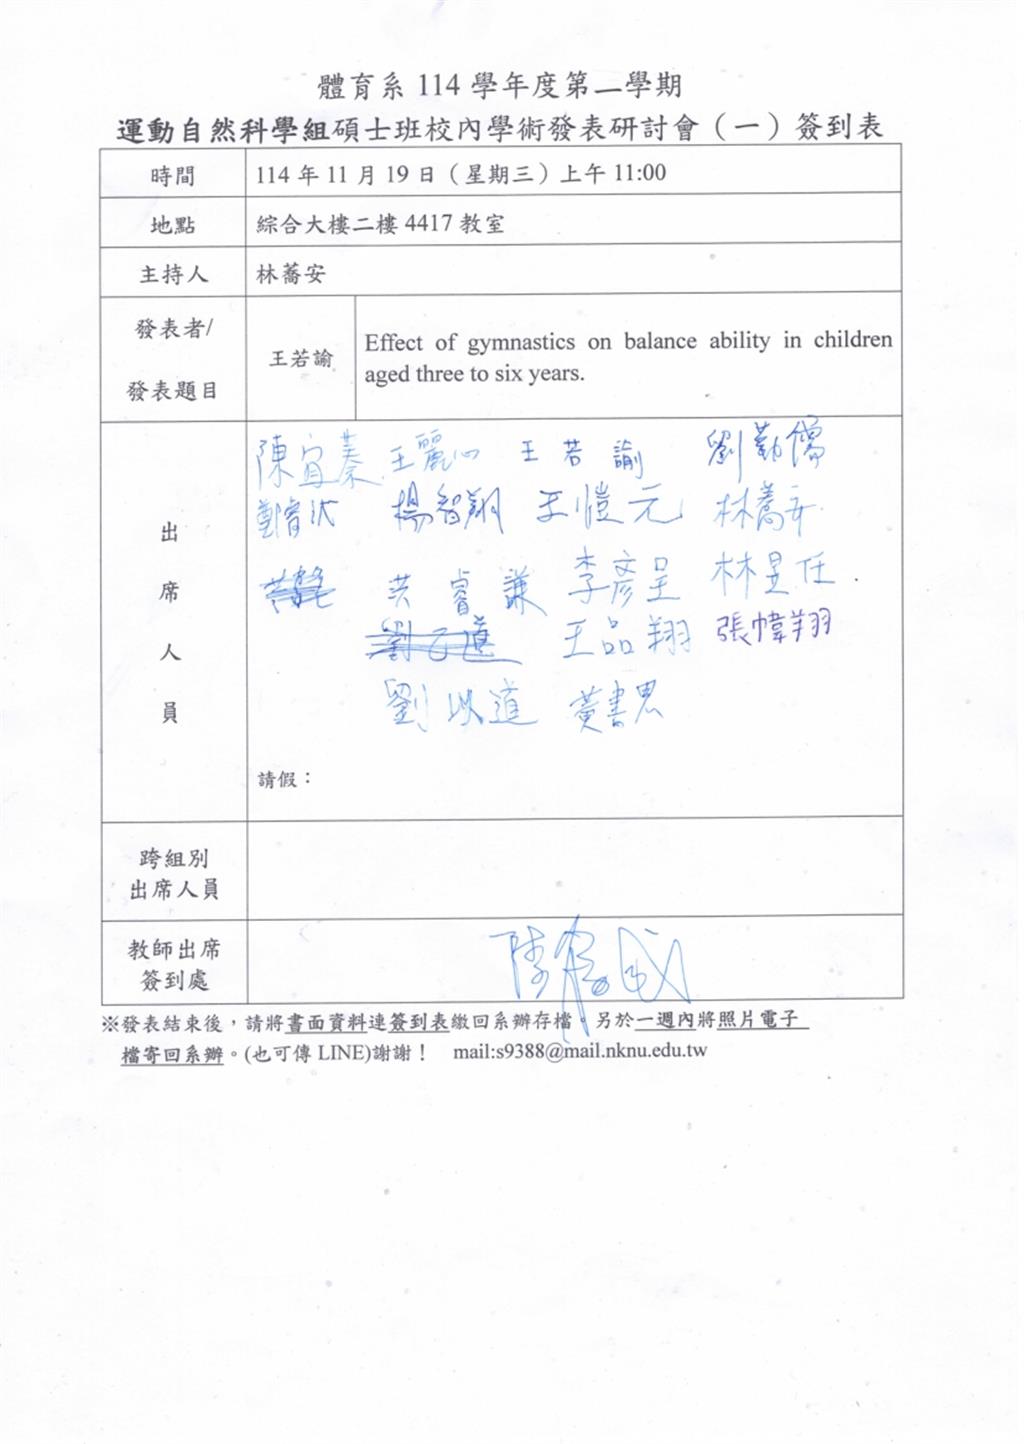 體育系 114 學年度第二學期
運動自然科學組碩士班校內學術發表研討會（一）簽到表
時間 114 年 11 月 19 日（星期三）上午 11:00
地點 綜合大樓二樓 4417 教室
主持人 林蕎安
發表者/
發表題目
王若諭
Effect of gymnastics on balance ability in children
aged three to six years.
出席人員
陳宜蓁 王麗心 王若諭 劉勤儒
楊智翔 王愷元 林蕎安
洪睿謙 李彥呈 林昱任
王品翔 張幃翔
劉以道 黃書思
請假：
跨組別
出席人員
教師出席
簽到處
※發表結束後，請將書面資料連簽到表繳回系辦存檔。另於一週內將照片電子
檔寄回系辦。(也可傳 LINE)謝謝！ mail:s9388@mail.nknu.edu.tw